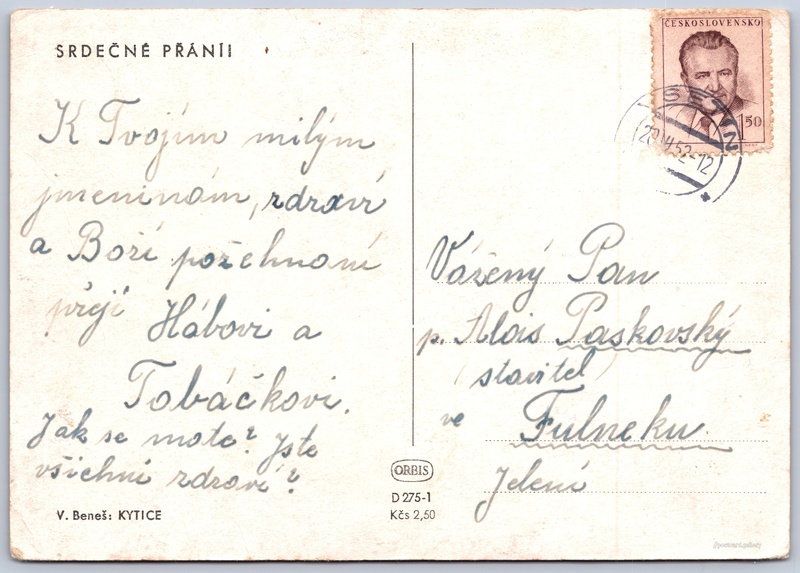 SRDEČNÉ PŘÁNÍ!
K Tvojím milým
jmeninám, zdraví
a Boží požehnání
přejí Hábovi a
Tobáčkovi.
Jak se máte? Jste
všichni zdraví?
V. Beneš: KYTICE
ORBIS
D 275-1
Kčs 2,50
ČESKOSLOVENSKO
1 50
SETÍN
52-12
Vážený Pan
p. Alois Paskovský
(stavitel)
ve Fulneku
Jelení